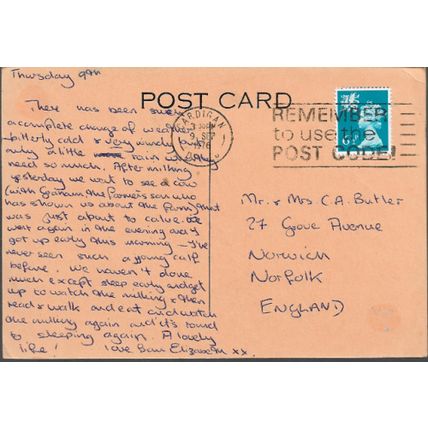 Thursday 9th
POST CARD
There has been such
a complete change of weather
bitterly cold & very windy but
only a little rain which they
need so much. After milking
yesterday we went to see a cow
(with Graham the farmer's son who
has shown us about the farm) that
was just about to calve. We
went again in the evening and I
got up early this morning - I've
never seen such a young calf
before. We haven't done
much except sleep early and get
up to watch the milking & then
read & walk and eat and watch
the milking again and it's round
to sleeping again. A lovely
life! love Elizabeth xx.
CARDIGAN
9 SEP
1976
REMEMBER
to use the
POST CODE!
6½P
Mr. & Mrs C.A. Butler
27 Grove Avenue
Norwich
Norfolk
ENGLAND